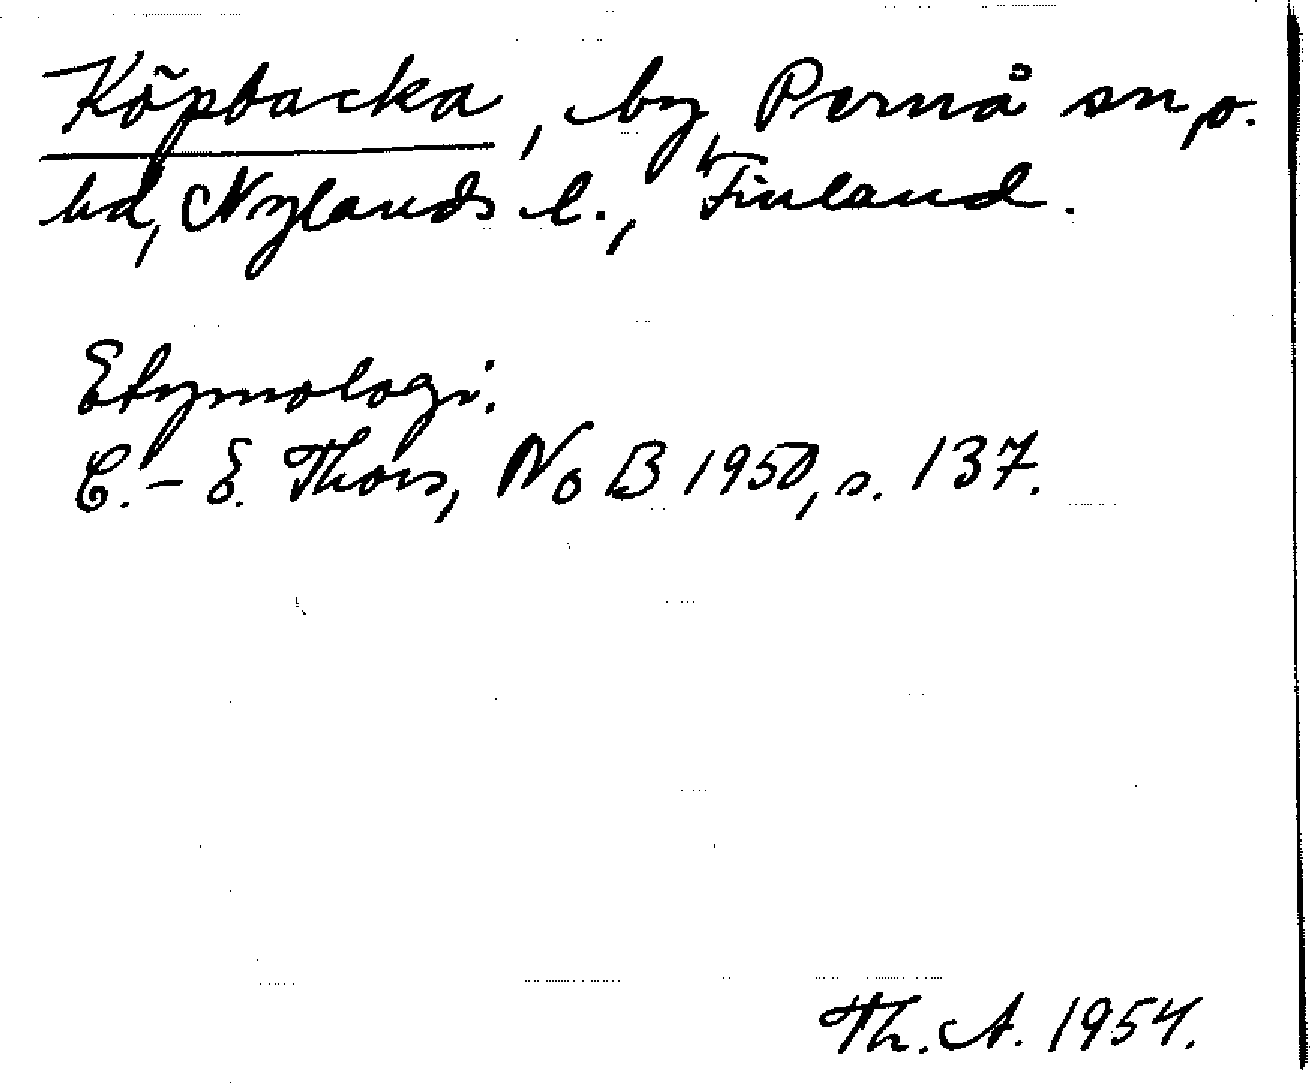 Köpbacka, by, Pernå sn, p.
hd, Nylands l., Finland.
Etymologi:
C.-E. Thors, NoB 1950, s. 137.
Th. A. 1954.